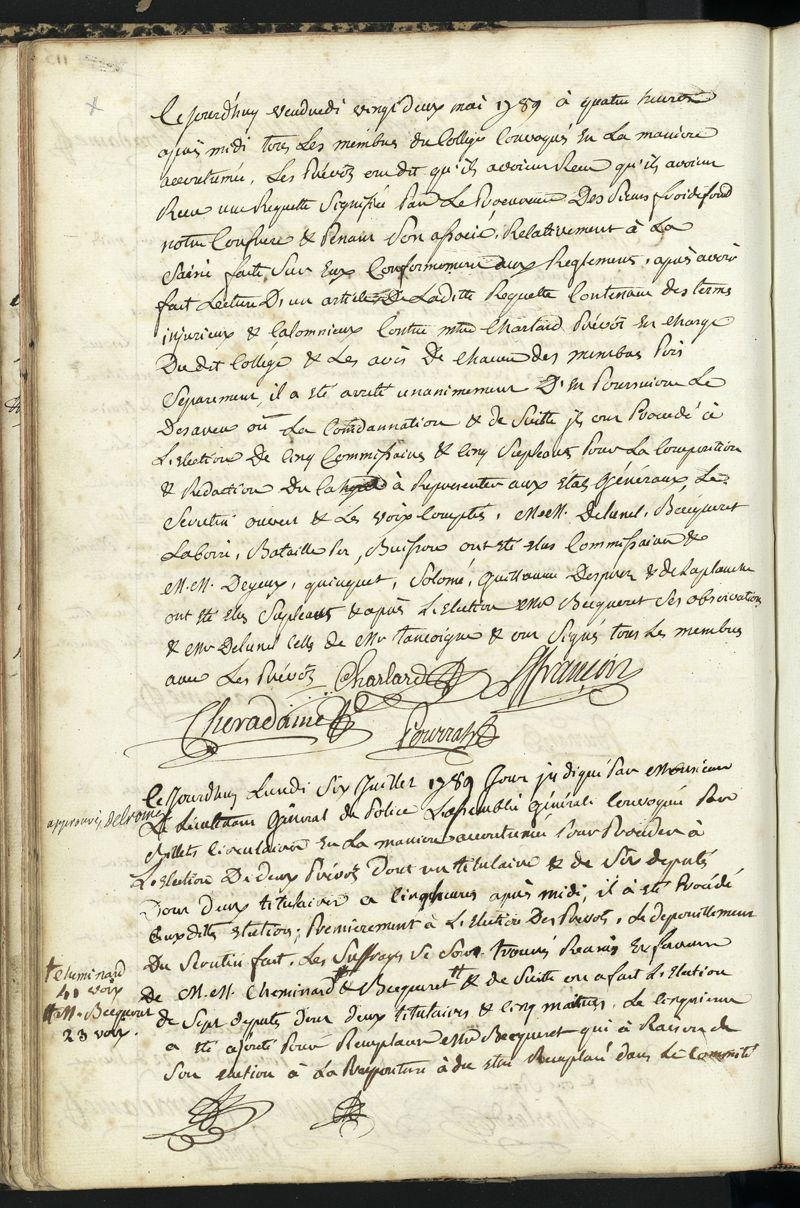 Ce Jourd'huy vendredi vingt deux mai 1789 à quatre heures
apres midi tous Les membres du College Convoqués En La maniere
accoutumée, Les Prévots ont dit qu'ils avoient Receu qu'ils avoient
Receu une Requette Signifiée Par Le Procureur Des Sieurs froidefond
notre Confrere & Renain Son associé, Relativement à La
Saisie faite Sur Eux Conformement aux Reglements, après avoir
fait Lecture D'un article De Laditte Requette Contenant des termes
injurieux & Calomnieux Contre mtre Charlard Prévôt En Charge
Du dit Collége & Les avis De Chacun des membres Pris
Séparement, il a été arrêté unanimement D'En Poursuivre Le
Desaveu où La Condannation & de Suite ils ont Procedé à
L'Election De Cinq Commissaires & Cinq Supleans Pour La Composition
& Redaction Du Cahyer à Representer aux Etats Généraux, Le
Scrutin ouvert & Les voix Comptés, M.M. Delunel, Becqueret
Laborie, Bataille Per, Buisson ont été Elus Commissaires &
M.M. Deyeux, quinquet, Solomé, Guillaume Desprez & de Laplanche
ont été Elus Supleants & après L'Election Mr Becqueret Ses observations
& Mr Delunel Celles de Mr Tancoigne & ont Signés tous Les membres
avec Les Prévôts Charlard
Cheradame Pourrat
Ce Jourdhuy Lundi Six Juillet 1789 Jour indiqué Par Monsieur
Le Lieutenant Général de Police L'assemblée Générale Convoquée Par
Billets Circulaires En La maniere accoutumée Pour Proceder à
L'Election De deux Prévôts Dont un titulaire & de Six députés
Dont deux titulaires a Cinq heures après midi, il à été Procédé
aux dittes Elections; Premierement à L'Election Des Prévots, Le depouillement
Du Scrutin fait, Les Suffrages Se Sont trouvés Reunis En faveur
De M.M. Cheminard † & Becqueret †† & de Suite on a fait L'Election
de Sept députés Dont deux titulaires & Cinq maitres, Le Cinquieme
a été ajouté Pour Remplacer Mr Becqueret qui à Raison de
Son Election à La a du Etre Remplacé dans Le Committé
† Cheminard
41 voix
†† M. Becqueret
23 voix.